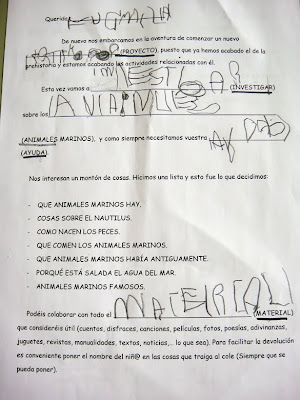 De nuevo nos embarcamos en la aventura de comenzar un nuevo
(PROYECTO), puesto que ya hemos acabado el de la
prehistoria y estamos acabando las actividades relacionadas con él.
Esta vez vamos a (INVESTIGAR)
sobre los
(ANIMALES MARINOS), y como siempre necesitamos vuestra
(AYUDA).
Nos interesan un montón de cosas. Hicimos una lista y esto fue lo que decidimos:
- QUE ANIMALES MARINOS HAY.
- COSAS SOBRE EL NAUTILUS.
- COMO NACEN LOS PECES.
- QUE COMEN LOS ANIMALES MARINOS.
- QUE ANIMALES MARINOS HABÍA ANTIGUAMENTE.
- PORQUÉ ESTÁ SALADA EL AGUA DEL MAR.
- ANIMALES MARINOS FAMOSOS.
Podéis colaborar con todo el MATERIAL (MATERIAL)
que consideréis útil (cuentos, disfraces, canciones, películas, fotos, poesías, adivinanzas,
juguetes, revistas, manualidades, textos, noticias,... lo que sea). Para facilitar la devolución
es conveniente poner el nombre del niñ@ en las cosas que traiga al cole (Siempre que se
pueda poner).